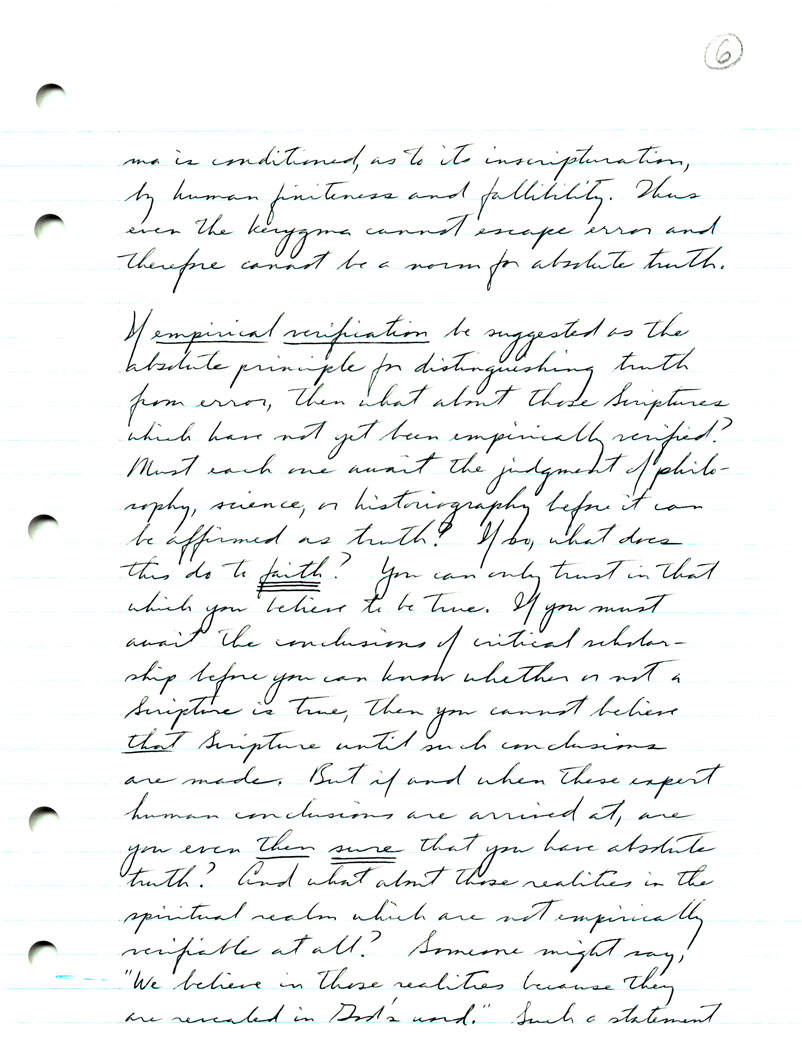 6
ma is conditioned, as to its inscripturation,
by human finiteness and fallibility. Thus
even the kerygma cannot escape error and
therefore cannot be a norm for absolute truth.
If empirical verification be suggested as the
absolute principle for distinguishing truth
from error, then what about those Scriptures
which have not yet been empirically verified?
Must each one await the judgment of philo-
sophy, science, or historiography before it can
be affirmed as truth? If so, what does
this do to faith? You can only trust in that
which you believe to be true. If you must
await the conclusions of critical scholar-
ship before you can know whether or not a
Scripture is true, then you cannot believe
that Scripture until such conclusions
are made. But if and when these expert
human conclusions are arrived at, are
you even then sure that you have absolute
truth? And what about those realities in the
spiritual realm which are not empirically
verifiable at all? Someone might say,
"We believe in those realities because they
are revealed in God's word." Such a statement